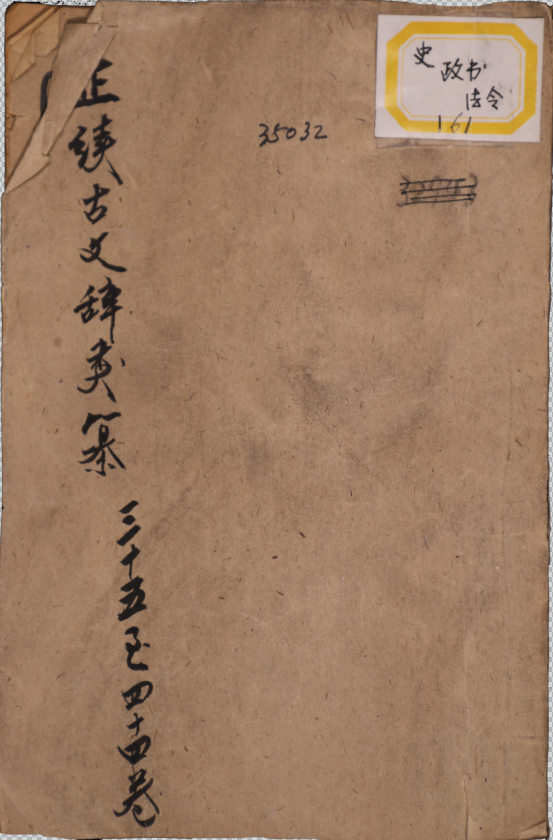 正續古文辞类纂
三十五至四十四卷
35032
史
政书
法令
161